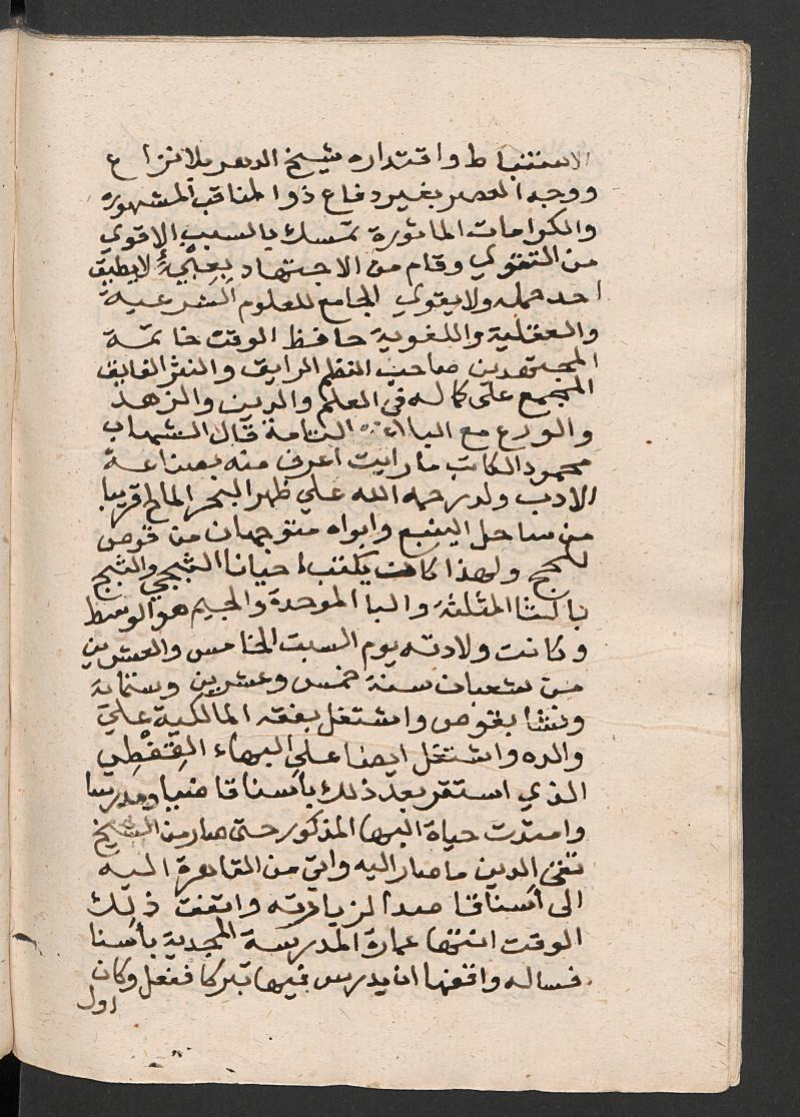 الاستنباط واقتداره شيخ الدهر بلا نزاع
ووجه العصر بغير دفاع ذوا لمناقب المشهوره
والكرامات الماثورة تمسك بالسبب الاقوي
من التقوي وقام من الاجتهاد بعبيء لا يطيق
احد حمله ولا يقوي الجامع للعلوم الشرعية
والعقلية واللغوية حافظ الوقت خاتمة
المجتهدين صاحب النظم الرايق والنثر الفايق
المجمع على كماله في العلم والدين والزهد
والورع مع التامة قال الشهاب
محمود الكاتب ما رايت اعرف منه بصناعة
الادب ولد رحمه الله علي ظهر البحر المالح قريبا
من ساحل الينبع وابواه متوجهان من قوص
للحج ولهذا كان يكتب احيانا الثبجي والثبج
بالثا المثلثة والبا الموحدة والجيم هو الوسط
وكانت ولادته يوم السبت الخامس والعشرين
من شعبان سنة خمس وعشرين وستماية
ونشا بقوص واشتغل بفقه المالكية علي
والده واشتغل ايضا علي البهاء القفطي
الذي استقر بعد ذلك بأسنا قاضيا ومدرسا
وامتدت حياة البها المذكور حتى صار من الشيخ
تقي الدين ما صار اليه واتي من القاهرة اليه
الى أسنا قاصدا لزيارته واتفق ذلك
الوقت انتها عمارة المدرسة المجدية بأسنا
فساله واقفها ان يدرس فيها تبركا ففعل وكان
اول